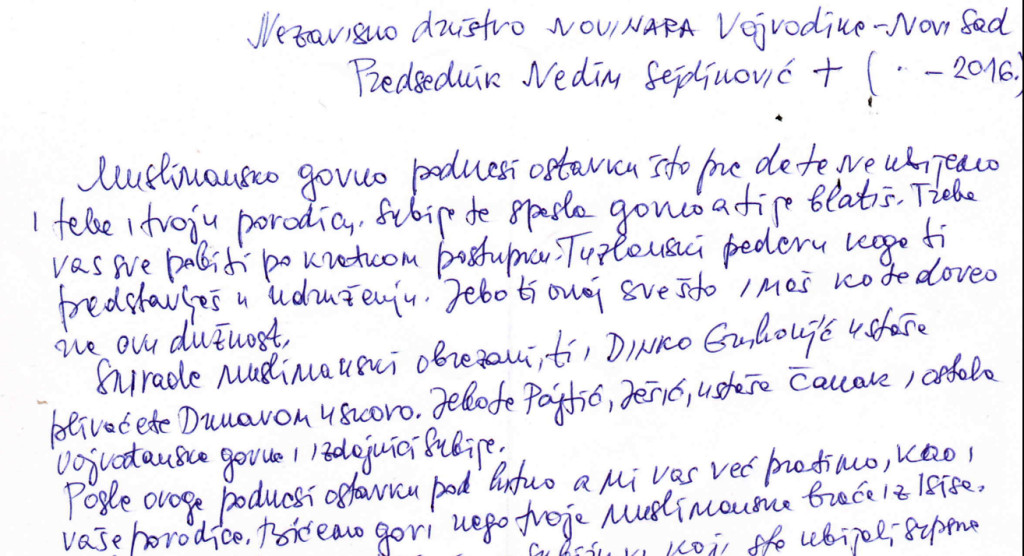 Nezavisno društvo NOVINARA Vojvodine - Novi Sad
Predsednik Nedim Sejdinović + ( . - 2016.)
Muslimansko govno podnesi ostavku što pre da te ne ubijemo
i tebe i tvoju porodicu. Srbije te spasla govno a ti je blatiš. Treba
vas sve pobiti po kratkom postupku. Tuzlanski pederu koga ti
predstavljaš u udruženju. Jebo ti onaj sve što imaš ko te doveo
na ovu dužnost.
Smrade muslimanski obrezani, ti, DINKO Gruhonjić ustaše
plivaćete Dunavom uskoro. Jebo te Pajtić, Ješić, ustaša Čanak i ostala
vojvođanska govna i izdajnici Srbije.
Posle ovoga podnesi ostavku pod hitno a mi vas već pratimo, kao i
vaše porodice. Bićemo gori nego tvoje muslimanske braće iz Isisa.
koji što ubijali srpske